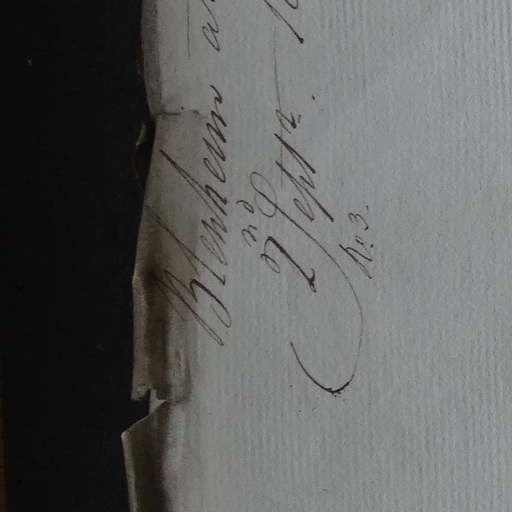 Blenheim at
2nd Sept.r
No. 3.